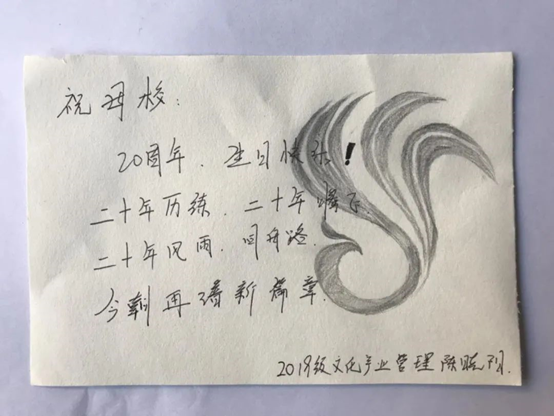 祝母校：
20周年、生日快乐！
二十年历练、二十年腾飞
二十年风雨、同舟路.
今朝再谱新篇章.
2019级文化产业管理陈晓